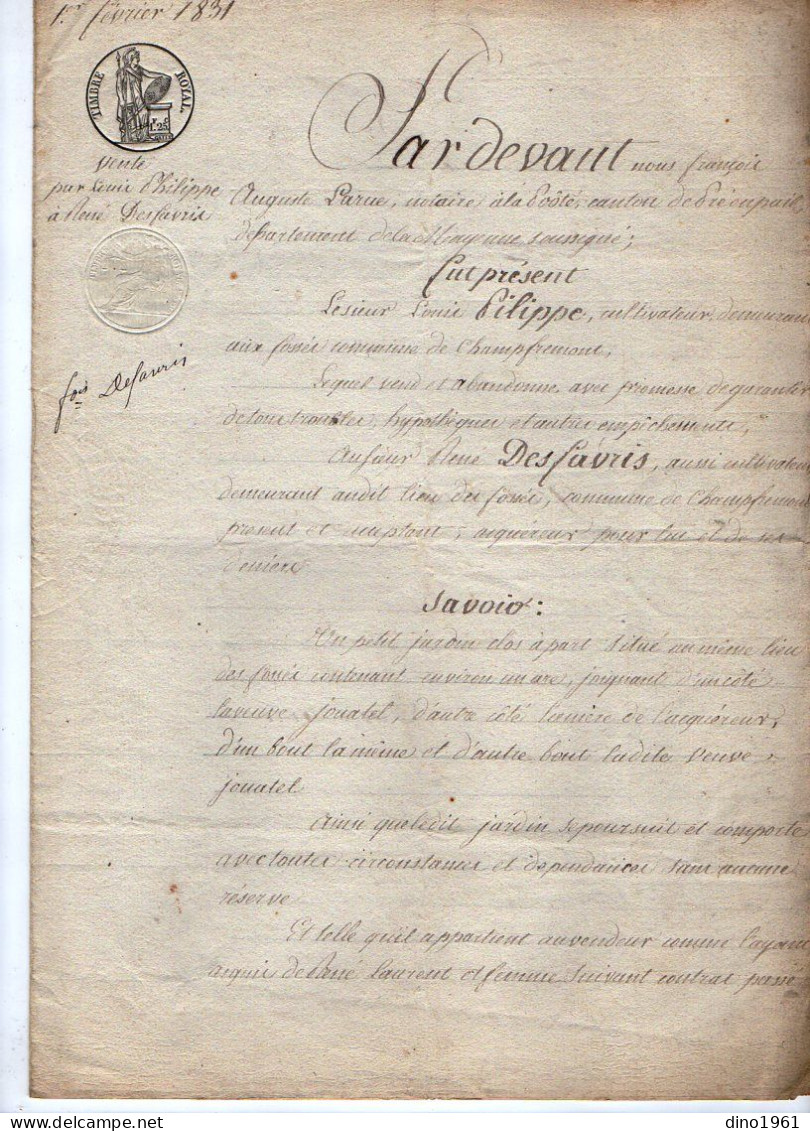 1er février 1831
TIMBRE ROYAL
1F.25
vente
par Louis Philippe
à René Desfavris
fois Desfavris
Pardevant nous françois
Auguste notaire à la Poôté, canton de Préenpail,
département de la Mayenne soussigné;
fut présent
Le sieur Louis Pilippe, cultivateur, demeurant
aux fossés commune de Champfremont,
Lequel vend et abandonne, avec promesse de garantir
de tous troubles, hypothèques et autres empêchements,
Au sieur René Desfavris, aussi cultivateur
demeurant audit lieu des fossés, commune de Champfremont
présent et acceptant, acquéreur pour lui et de ses
deniers
Savoir:
Un petit jardin clos à part situé au même lieu
des fossés contenant environ un are, joignant d'un côté
la veuve Jouatel, d'autre côté la mère de l'acquéreur,
d'un bout la même et d'autre bout ladite veuve
jouatel
Ainsi que ledit jardin se poursuit et comporte
avec toutes circonstances et dépendances sans aucune
réserve
Et telle qu'il appartient au vendeur comme l'ayant
acquis de René Laurent et femme suivant contrat passé
dino1961